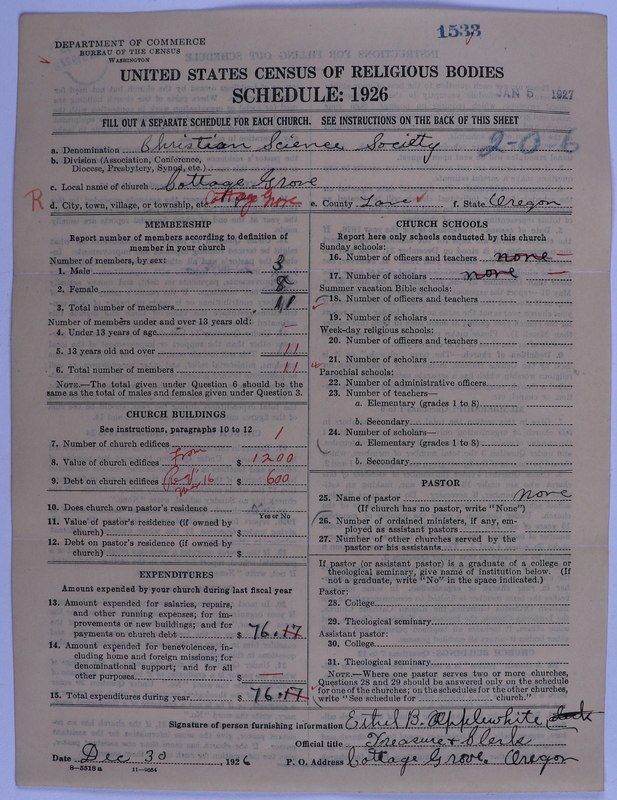 1533
DEPARTMENT OF COMMERCE
BUREAU OF THE CENSUS
WASHINGTON
UNITED STATES CENSUS OF RELIGIOUS BODIES
SCHEDULE: 1926
JAN 5 1927
FILL OUT A SEPARATE SCHEDULE FOR EACH CHURCH. SEE INSTRUCTIONS ON THE BACK OF THIS SHEET
a. Denomination Christian Science Society
2-0-6
b. Division (Association, Conference,
Diocese, Presbytery, Synod, etc.)
c. Local name of church Cottage Grove
R d. City, town, village, or township, etc. Cottage Grove e. County Lane f. State Oregon
MEMBERSHIP
Report number of members according to definition of
member in your church
Number of members, by sex:
1. Male 3
2. Female 8
3. Total number of members 11
Number of members under and over 13 years old:
4. Under 13 years of age —
5. 13 years old and over 11
6. Total number of members 11
NOTE.—The total given under Question 6 should be the
same as the total of males and females given under Question 3.
CHURCH BUILDINGS
See instructions, paragraphs 10 to 12
7. Number of church edifices 1
From
8. Value of church edifices $ 1200
9. Debt on church edifices $ 600
10. Does church own pastor's residence
Yes or No
11. Value of pastor's residence (if owned by
church) $
12. Debt on pastor's residence (if owned by
church) $
EXPENDITURES
Amount expended by your church during last fiscal year
13. Amount expended for salaries, repairs,
and other running expenses; for im-
provements or new buildings; and for
payments on church debt $ 76.17
14. Amount expended for benevolences, in-
cluding home and foreign missions; for
denominational support; and for all
other purposes $ —
15. Total expenditures during year $ 76.17
CHURCH SCHOOLS
Report here only schools conducted by this church
Sunday schools:
16. Number of officers and teachers none —
17. Number of scholars none —
Summer vacation Bible schools:
18. Number of officers and teachers
19. Number of scholars
Week-day religious schools:
20. Number of officers and teachers
21. Number of scholars
Parochial schools:
22. Number of administrative officers
23. Number of teachers—
a. Elementary (grades 1 to 8)
b. Secondary
24. Number of scholars—
a. Elementary (grades 1 to 8)
b. Secondary
PASTOR
25. Name of pastor none
(If church has no pastor, write "None")
26. Number of ordained ministers, if any, em-
ployed as assistant pastors
27. Number of other churches served by the
pastor or his assistants
If pastor (or assistant pastor) is a graduate of a college or
theological seminary, give name of institution below. (If
not a graduate, write "No" in the space indicated.)
Pastor:
28. College
29. Theological seminary
Assistant pastor:
30. College
31. Theological seminary
NOTE.—Where one pastor serves two or more churches,
Questions 28 and 29 should be answered only on the schedule
for one of the churches; on the schedules for the other churches,
write "See schedule for church."
Signature of person furnishing information Ethel B. Applewhite
Official title Treasure & Clerk
Date Dec 30, 1926 P. O. Address Cottage Grove. Oregon
8—5518 a 11—9054